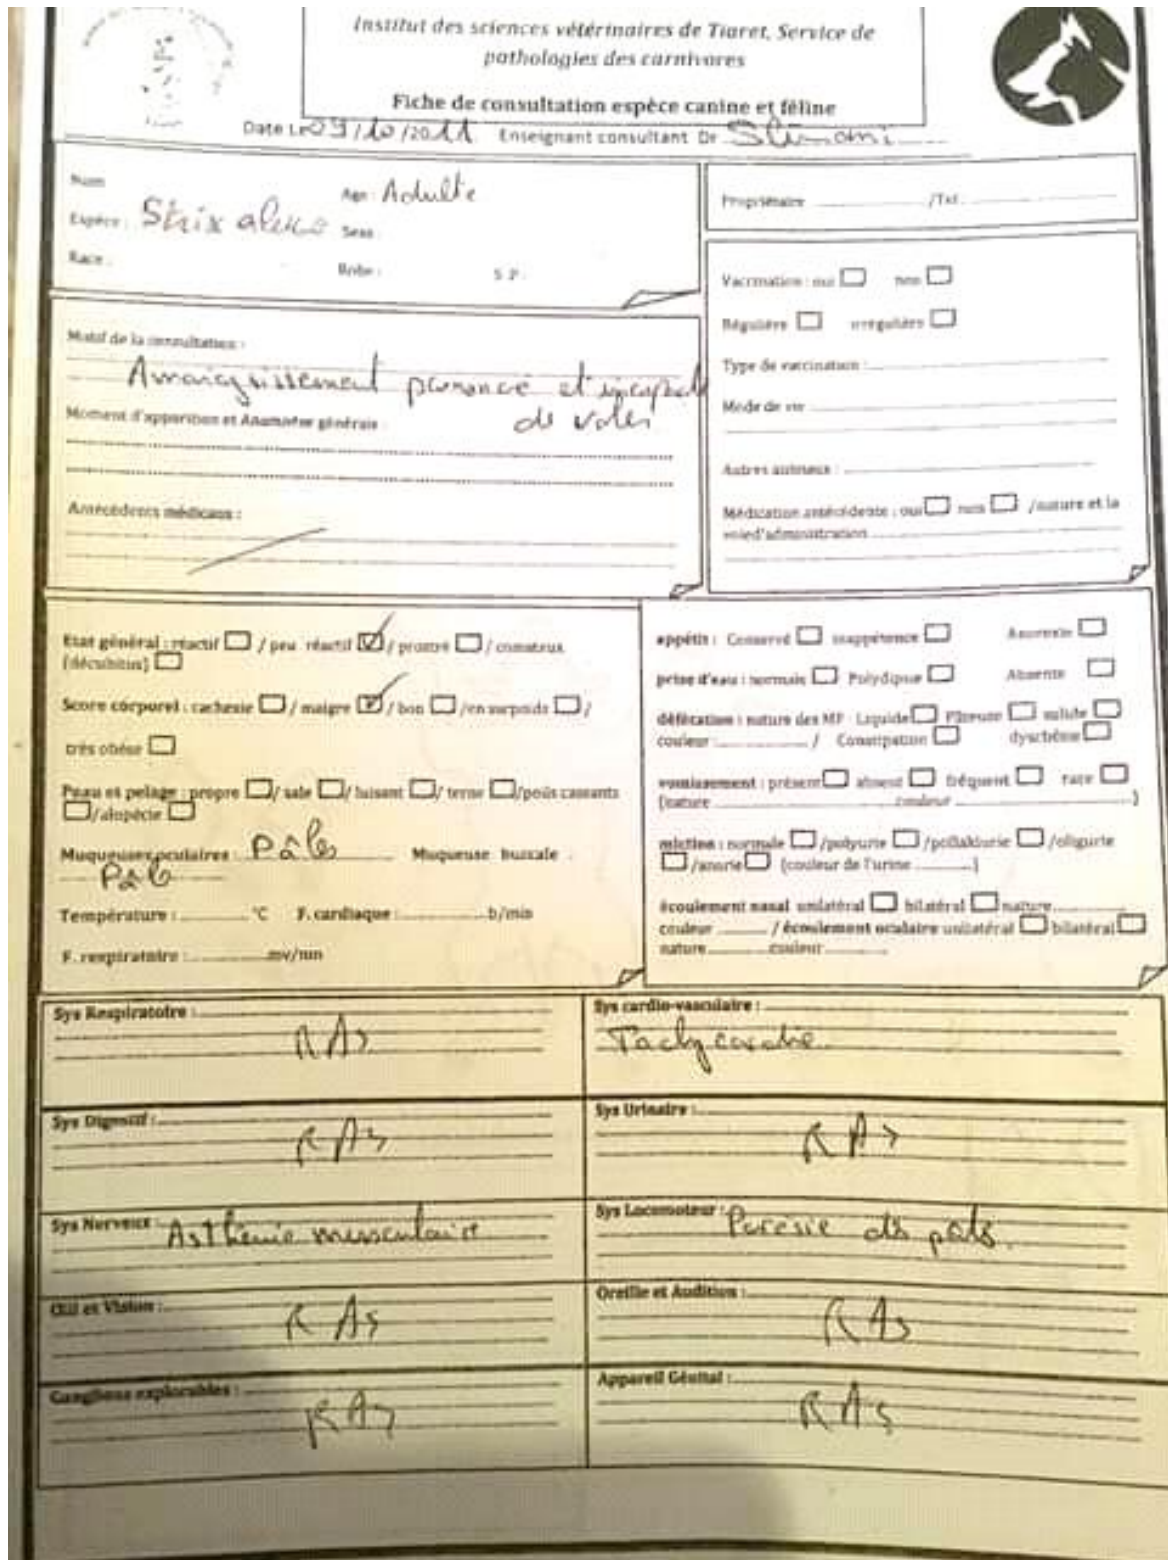 Institut des sciences vétérinaires de Tiaret, Service de
pathologies des carnivores
Fiche de consultation espèce canine et féline
Date Le 09/10/2011 Enseignant consultant Dr Slimani
Nom
Age : Adulte
Espèce : Strix aluco Sexe :
Race :
Robe :
S P :
Propriétaire /Tel
Vaccination : oui non
Régulière irrégulière
Type de vaccination :
Mode de vie
Autres animaux :
Médication antécédente : oui non /nature et la
voie d'administration
Motif de la consultation :
Amaigrissement et
de voler
Moment d'apparition et Anamnèse générale :
Antécédents médicaux :
Etat général : réactif / peu réactif / prostré / comateux
(décubitus)
Score corporel : cachexie / maigre / bon /en surpoids /
très obèse
Peau et pelage : propre / sale / luisant / terne /poils cassants
/alopécie
Muqueuses oculaires : Pâles Muqueuse buccale :
Pâle
Température : °C F. cardiaque : b/min
F. respiratoire : mv/mn
appétit : Conservé inappétence Anorexie
prise d'eau : normale Polydipsie Absente
défécation : nature des MF : Liquide Pâteuse solide
couleur : / Constipation dyschésie
vomissement : présent absent fréquent rare
(nature couleur )
miction : normale /polyurie /pollakiurie /oligurie
/anurie (couleur de l'urine )
écoulement nasal unilatéral bilatéral nature
couleur / écoulement oculaire unilatéral bilatéral
nature couleur
Sys Respiratoire :
RAS
Sys cardio-vasculaire :
Tachycardie
Sys Digestif :
RAS
Sys Urinaire :
RAS
Sys Nerveux : Asthénie musculaire
Sys Locomoteur : Parésie des
Œil et Vision :
RAS
Oreille et Audition :
RAS
Ganglions explorables :
RAS
Appareil Génital :
RAS